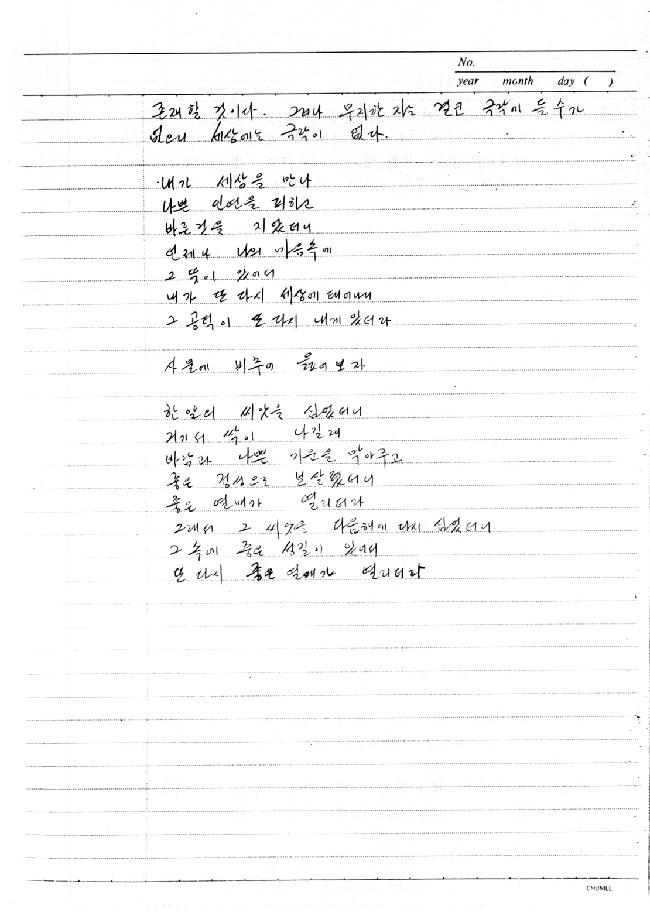 No.
year month day ( )
존재할 것이다. 그러나 무지한 자는 결코 극락이 들 수가
없으니 세상에는 극락이 없다.
내가 세상을 만나
나쁜 인연을 피하고
바른것을 지었더니
언제나 나의 마음속에
그 뜻이 있어서
내가 또 다시 세상에 태어나니
그 공덕이 또 다시 내게 있더라
사물에 비추어 풀어보라
한 알의 씨앗을 심었더니
거기서 싹이 나길래
바람과 나쁜 기운을 막아주고
좋은 정성으로 보살폈더니
좋은 열매가 열리더라
그래서 그 씨앗을 다음해에 다시 심었더니
그 속에 좋은 성질이 있어서
또 다시 좋은 열매가 열리더라